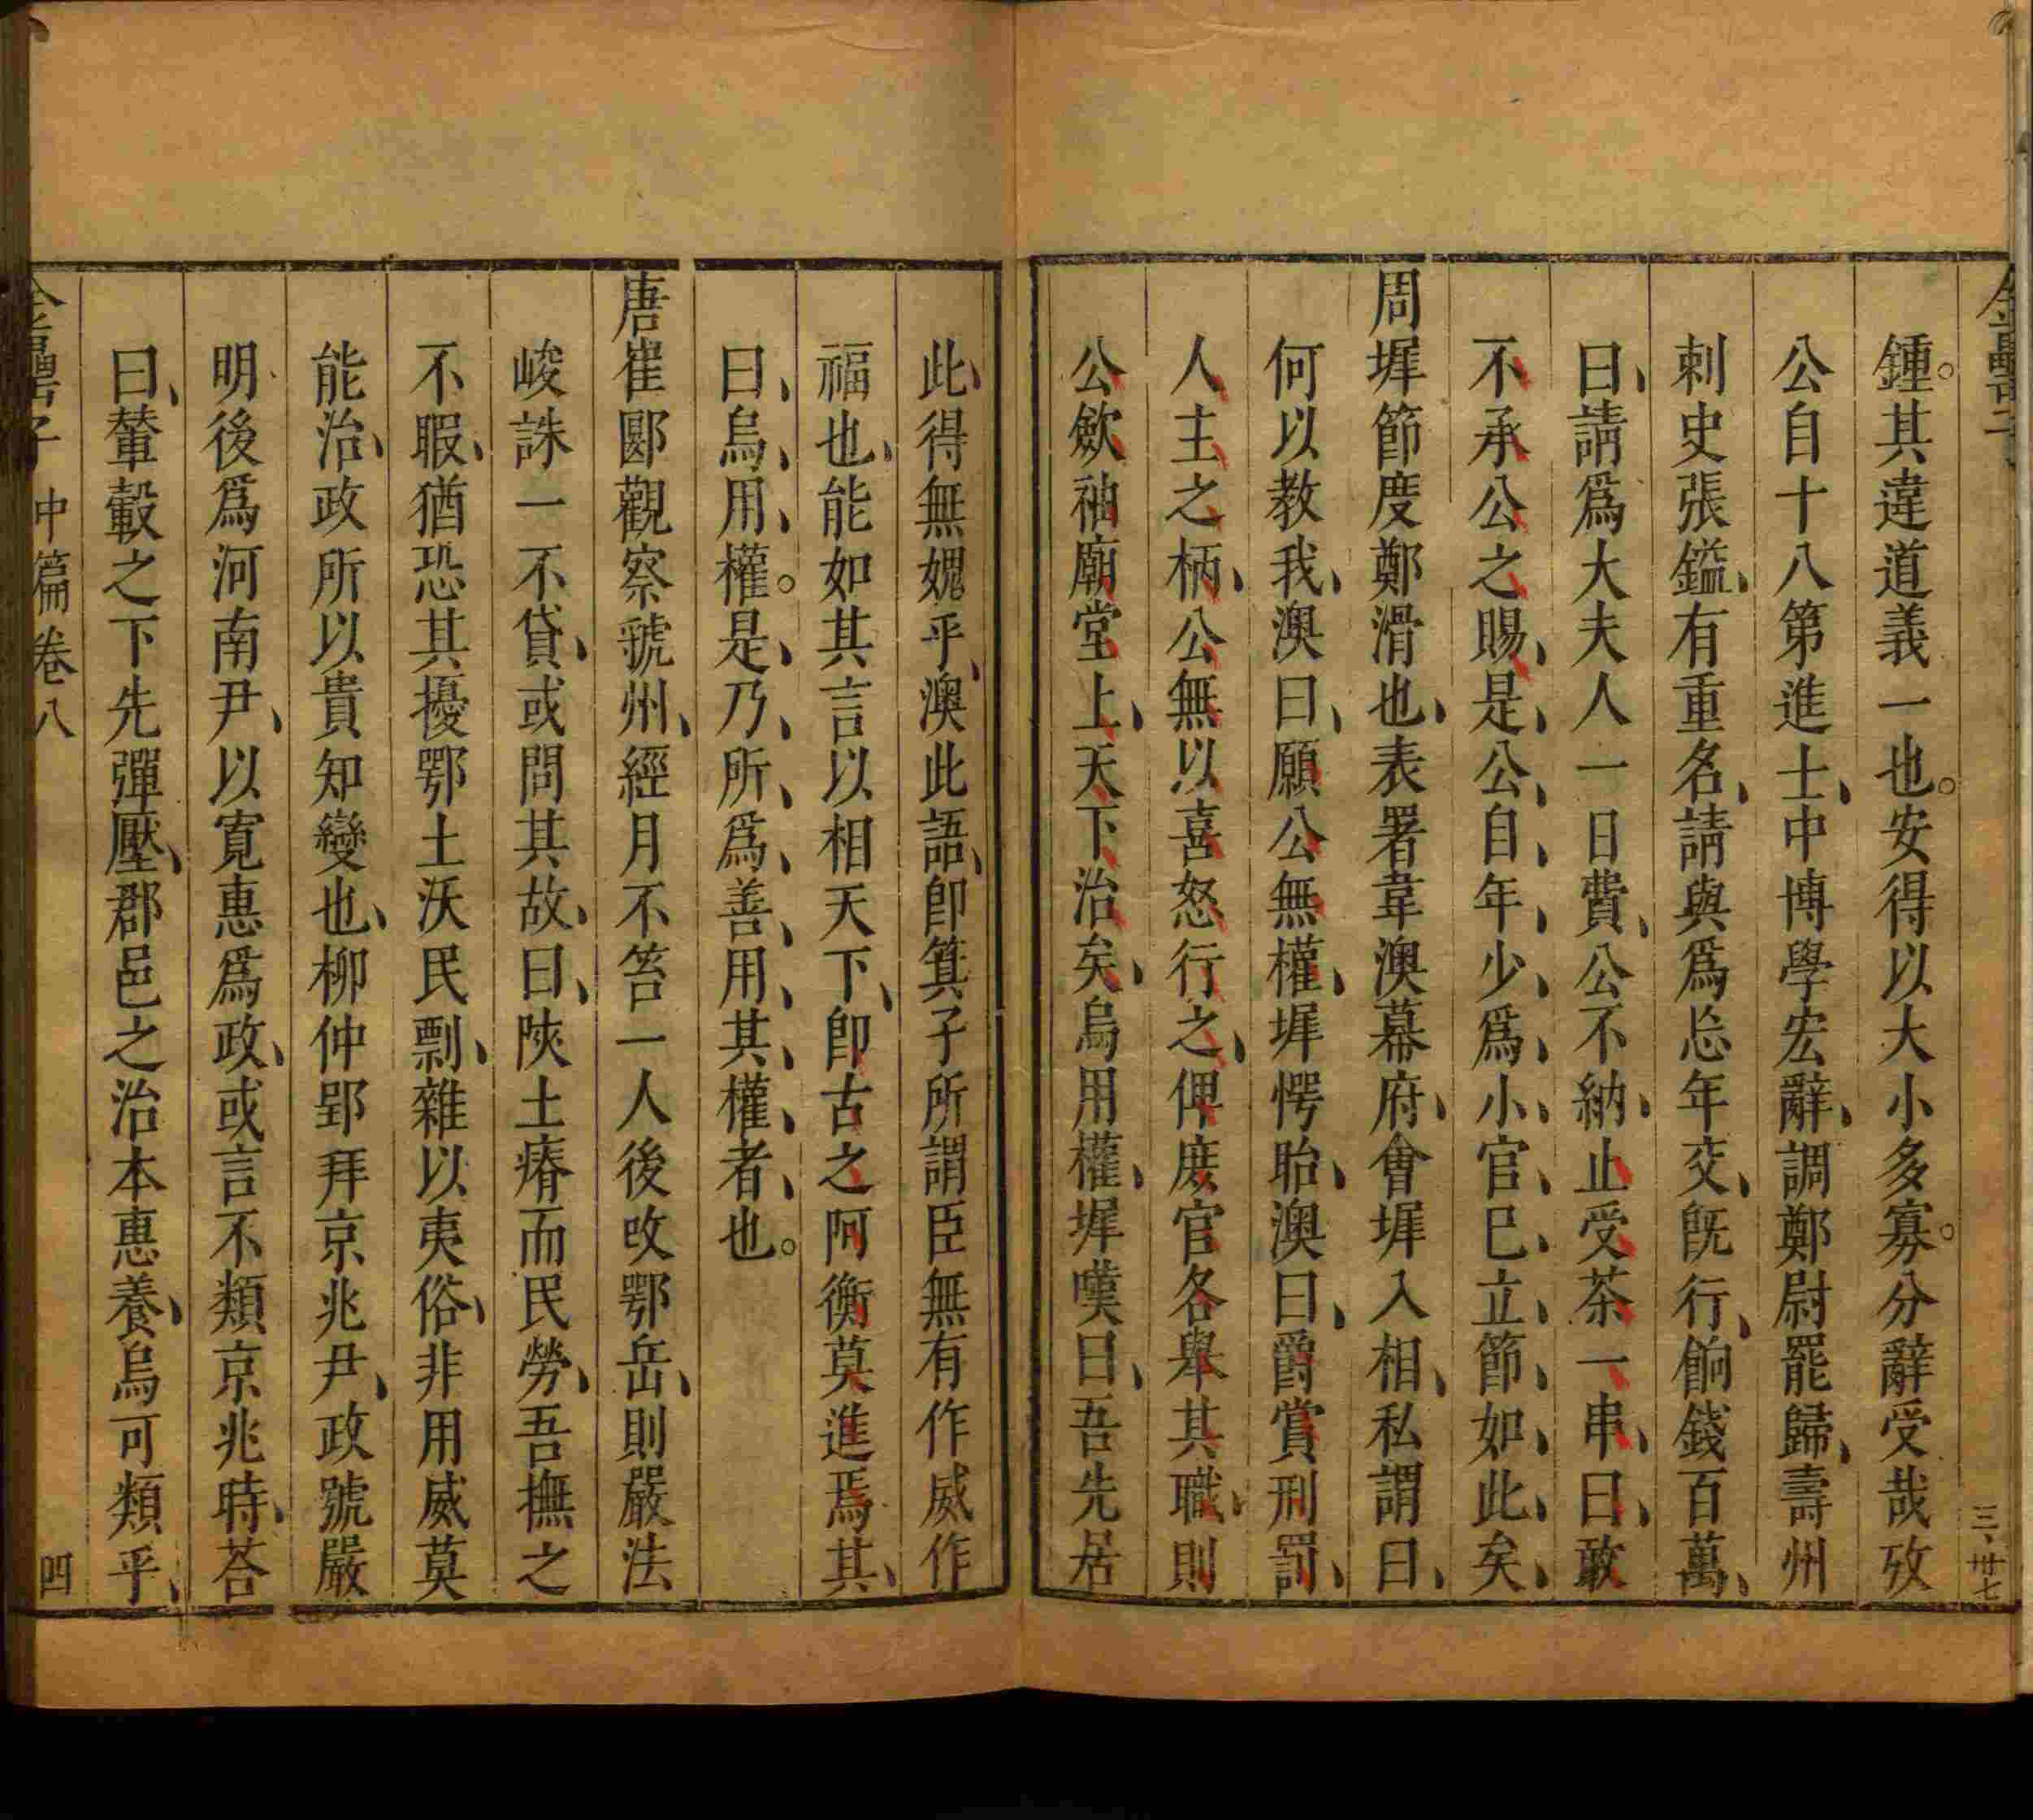 鍾其違道義一也安得以大小多寡分辭受哉攷
公自十八第進士中博學宏辭調鄭尉罷歸壽州
刺史張鎰有重名請與爲忘年交旣行餉錢百萬
曰請爲大夫人一日費公不納止受茶一串曰敢
不承公之賜是公自年少爲小官已立節如此矣
周墀節度鄭滑也表署韋澳幕府會墀入相私謂曰
何以教我澳曰願公無權墀愕眙澳曰爵賞刑罰
人主之柄公無以喜怒行之俾庶官各舉其職則
公歛袖廟堂上天下治矣烏用權墀嘆曰吾先居
此得無媿乎澳此語卽箕子所謂臣無有作威作
福也能如其言以相天下卽古之阿衡莫進焉其
曰烏用權是乃所爲善用其權者也
唐崔郾觀察虢州經月不笞一人後攺鄂岳則嚴法
峻誅一不貸或問其故曰陝土瘠而民勞吾撫之
不暇猶恐其擾鄂土沃民剽雜以夷俗非用威莫
能治政所以貴知變也柳仲郢拜京兆尹政號嚴
明後爲河南尹以寬惠爲政或言不類京兆時荅
曰輦轂之下先彈壓郡邑之治本惠養烏可類乎
中篇卷八 四